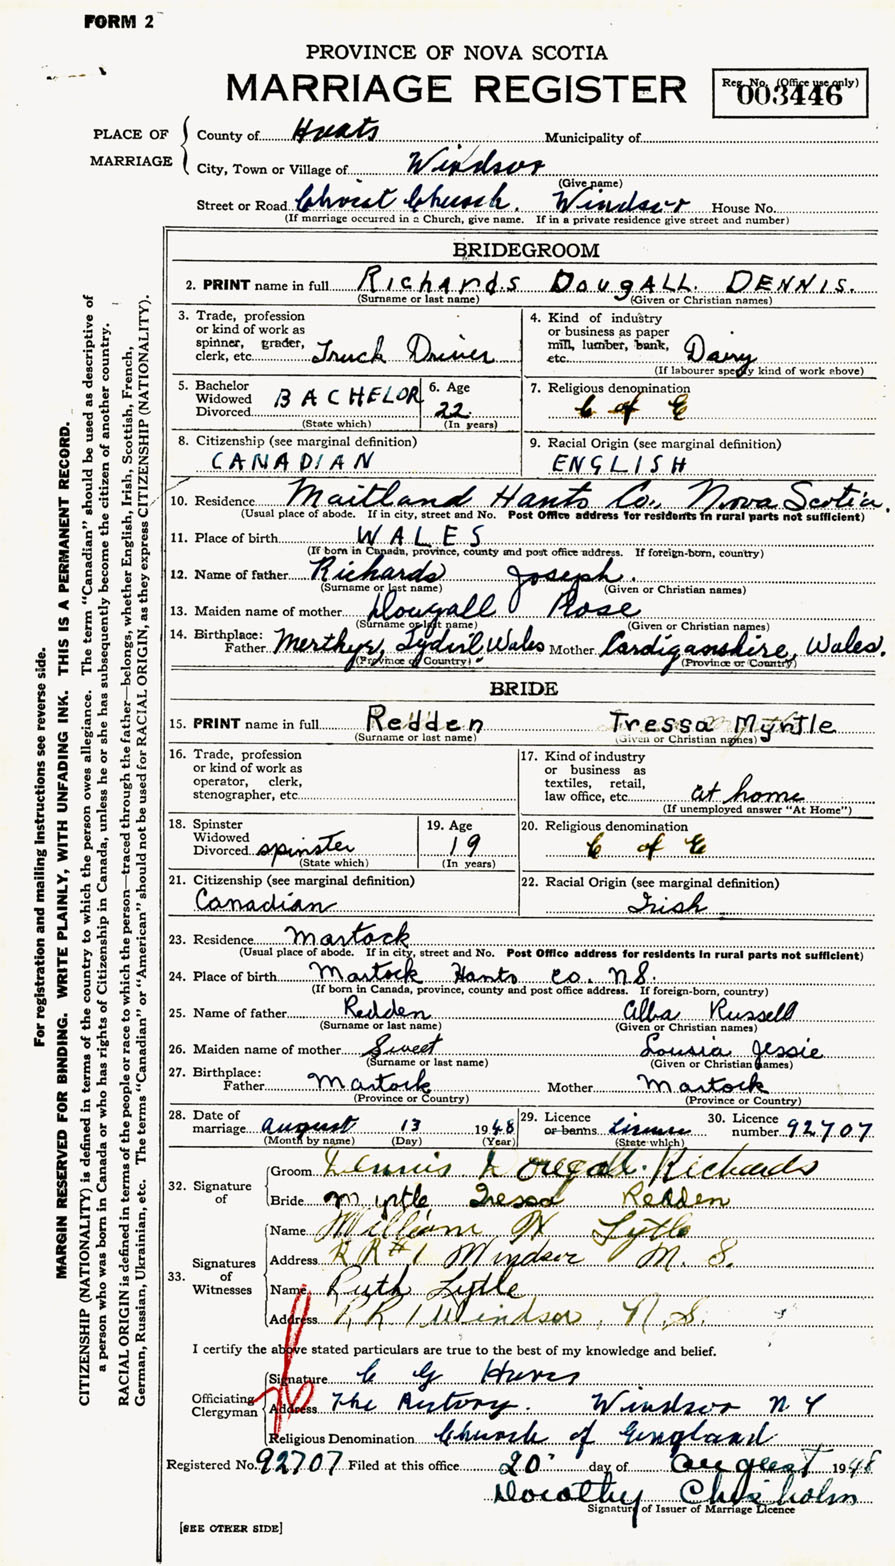 FORM 2
PROVINCE OF NOVA SCOTIA
MARRIAGE REGISTER
Reg. No. (Office use only)
003446
PLACE OF MARRIAGE
County of Hants Municipality of
City, Town or Village of Windsor
(Give name)
Street or Road Christ Church. Windsor House No.
(If marriage occurred in a Church, give name. If in a private residence give street and number)
BRIDEGROOM
2. PRINT name in full Richards DougALL DENNIS.
(Surname or last name) (Given or Christian names)
3. Trade, profession or kind of work as spinner, grader, clerk, etc. Truck Driver
4. Kind of industry or business as paper mill, lumber, bank, etc. Dairy
(If labourer specify kind of work above)
5. Bachelor Widowed Divorced BACHELOR
(State which)
6. Age 22
(In years)
7. Religious denomination
C of E
8. Citizenship (see marginal definition)
CANADIAN
9. Racial Origin (see marginal definition)
ENGLISH
10. Residence Maitland Hants Co., Nova Scotia.
(Usual place of abode. If in city, street and No. Post Office address for residents in rural parts not sufficient)
11. Place of birth WALES
(If born in Canada, province, county and post office address. If foreign-born, country)
12. Name of father Richards Joseph.
(Surname or last name) (Given or Christian names)
13. Maiden name of mother Dougall Rose
(Surname or last name) (Given or Christian names)
14. Birthplace:
Father Merthyr, Tydvil Wales Mother Cardiganshire, Wales.
(Province or Country) (Province or Country)
BRIDE
15. PRINT name in full Redden Tressa Myrtle
(Surname or last name) (Given or Christian names)
16. Trade, profession or kind of work as operator, clerk, stenographer, etc.
17. Kind of industry or business as textiles, retail, law office, etc. at home
(If unemployed answer "At Home")
18. Spinster Widowed Divorced spinster
(State which)
19. Age
19
(In years)
20. Religious denomination
C of E
21. Citizenship (see marginal definition)
Canadian
22. Racial Origin (see marginal definition)
Irish
23. Residence Martock
(Usual place of abode. If in city, street and No. Post Office address for residents in rural parts not sufficient)
24. Place of birth Martock Hants Co. N.S.
(If born in Canada, province, county and post office address. If foreign-born, country)
25. Name of father Redden Alba Russell
(Surname or last name) (Given or Christian names)
26. Maiden name of mother Sweet Lousia Jessie
(Surname or last name) (Given or Christian names)
27. Birthplace:
Father Martock Mother Martock
(Province or Country) (Province or Country)
28. Date of marriage August 13 1948
(Month by name) (Day) (Year)
29. Licence or banns License
(State which)
30. Licence number 92707
32. Signature of
Groom Dennis Dougall Richards
Bride Myrtle Tressa Redden
33. Signatures of Witnesses
Name William H Lytle
Address R R #1 Windsor N. S.
Name Ruth Lytle
Address R R 1 Windsor, N.S.
I certify the above stated particulars are true to the best of my knowledge and belief.
Officiating Clergyman
Signature C G
Address The Rectory. Windsor N S
Religious Denomination Church of England
Registered No. 92707 Filed at this office 20 day of August 1948
Dorothy Chisholm
Signature of Issuer of Marriage Licence
[SEE OTHER SIDE]
For registration and mailing instructions see reverse side.
MARGIN RESERVED FOR BINDING. WRITE PLAINLY, WITH UNFADING INK. THIS IS A PERMANENT RECORD.
CITIZENSHIP (NATIONALITY) is defined in terms of the country to which the person owes allegiance. The term "Canadian" should be used as descriptive of
a person who was born in Canada or who has rights of Citizenship in Canada, unless he or she has subsequently become the citizen of another country.
RACIAL ORIGIN is defined in terms of the people or race to which the person—traced through the father—belongs, whether English, Irish, Scottish, French,
German, Russian, Ukrainian, etc. The terms "Canadian" or "American" should not be used for RACIAL ORIGIN, as they express CITIZENSHIP (NATIONALITY).